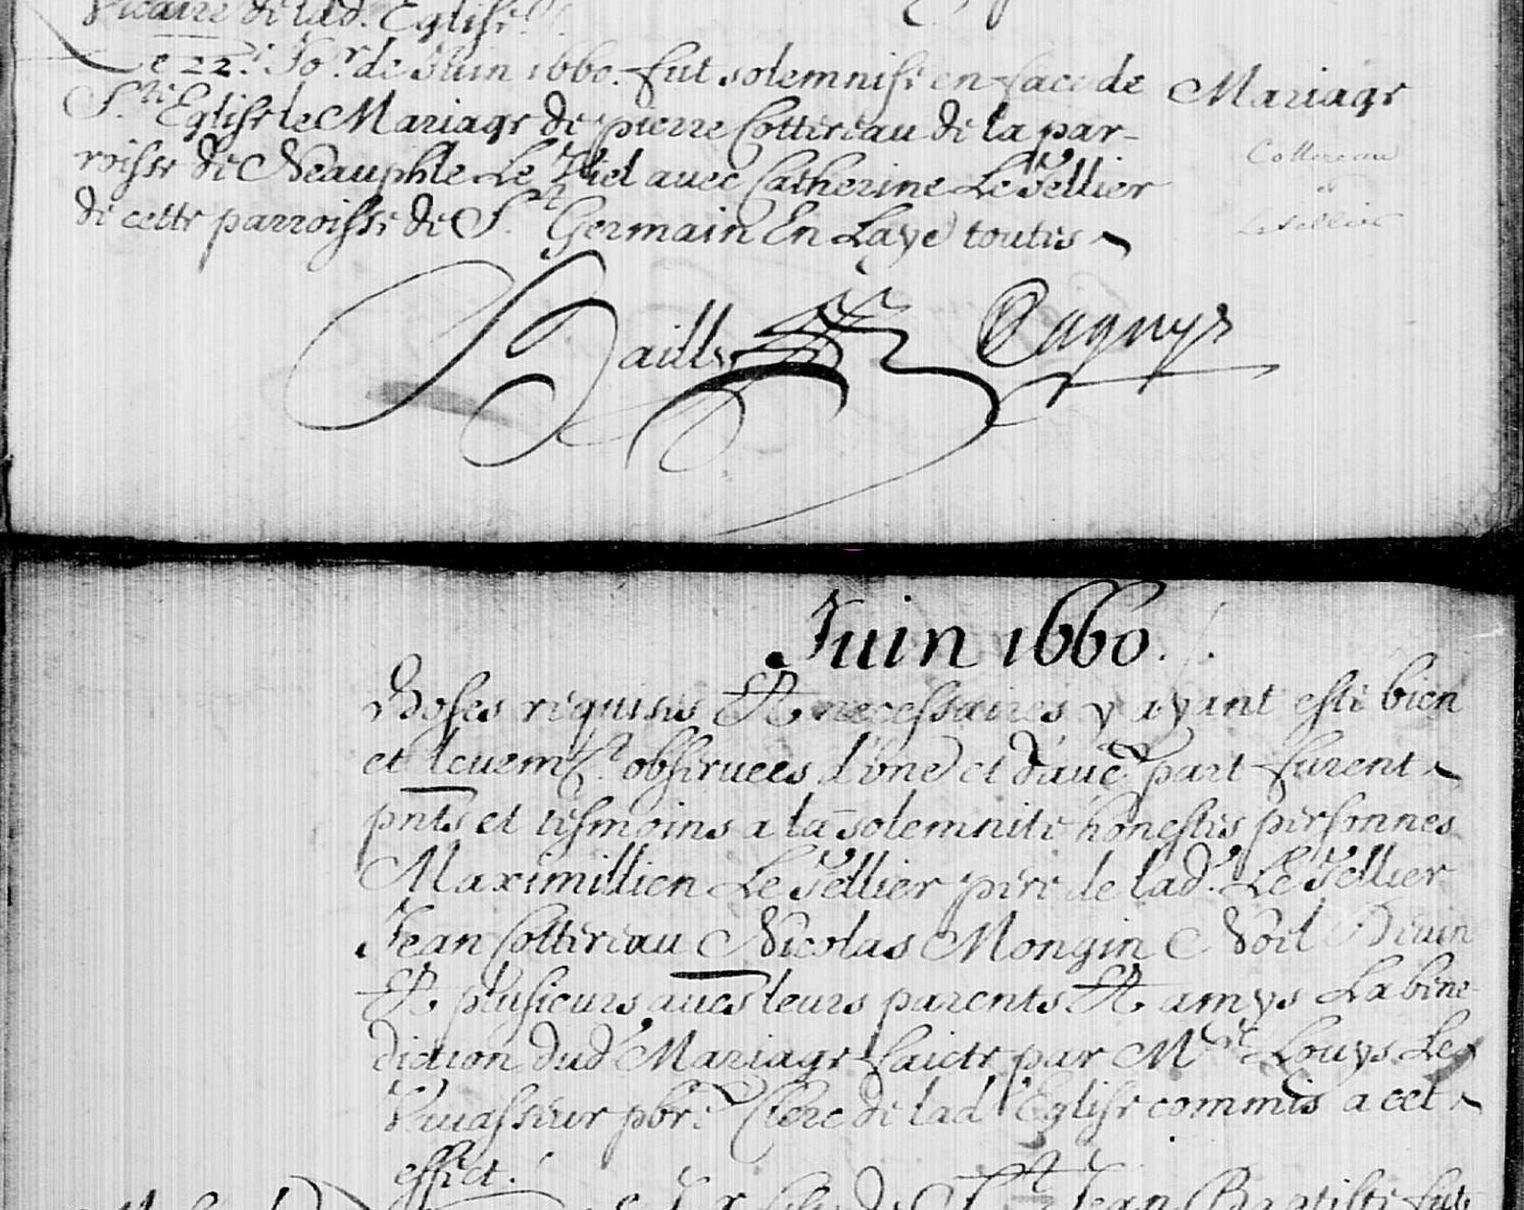 Vicaire de lad. Eglise
Le 22.e Jo.r de Juin 1660. fut solemnisé en face de
S.te Eglise le Mariage de pierre Cottereau de la par-
roisse de Neauphle Le Viel avec Catherine Le Tellier
de cette parroisse de S.t Germain En Laye toutes
Mariage
Cottereau
et
Le Tellier
Bailly Cagnyé
Juin 1660.
Choses requises Et necessaires y ayant esté bien
et deuem.t obseruees d'vne et d'auc.e part furent
pnts et tesmoins a la solemnité honestes personnes
Maximillien Le Tellier pere de lad. Le Tellier
Jean Cottereau Nicolas Mongin Noël Deuin
Et plusieurs aues leurs parents Et amys La bene
diction dud Mariage faicte par M.re Louys Le
Vauasseur pbre Clerc de lad Eglise commis a cet
effect.
Jo.r de S.t Jean Baptiste fut